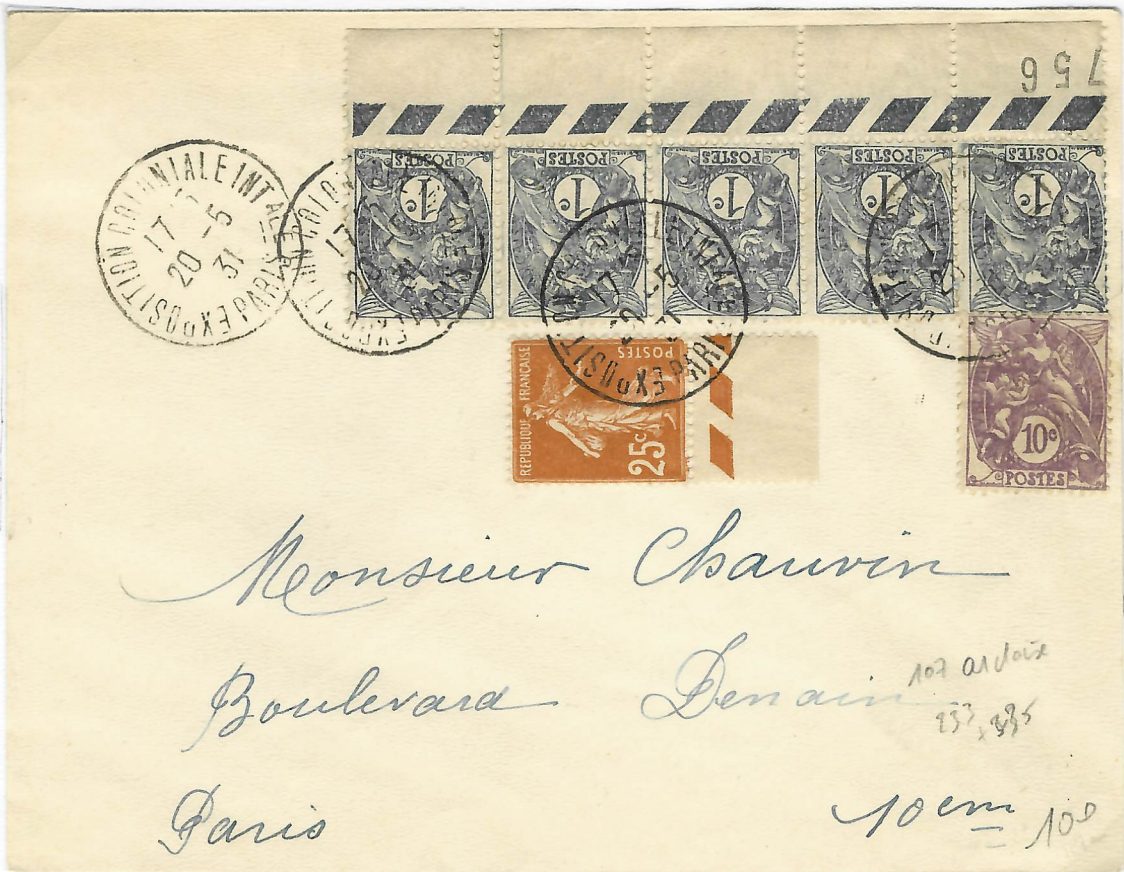 756
POSTES POSTES POSTES POSTES POSTES
1c 1c 1c 1c 1c
EXPOSITION COLONIALE INTALE PARIS
17
20-5
31
REPUBLIQUE FRANÇAISE
POSTES
25c
10c
POSTES
Monsieur Chauvin
Boulevard Denain
107 ardoise
233
Paris
10em
10